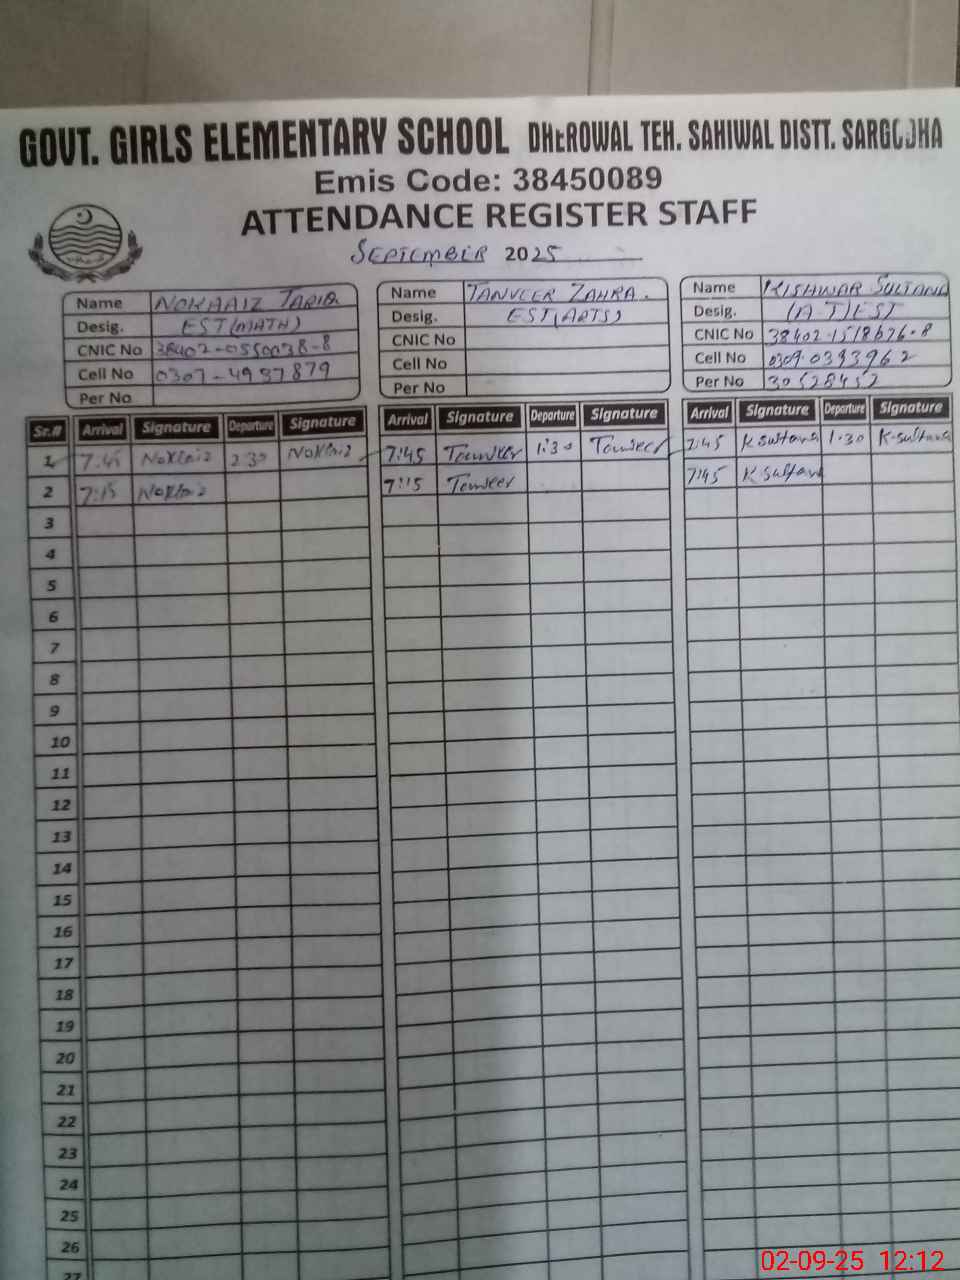 GOVT. GIRLS ELEMENTARY SCHOOL DHEROWAL TEH. SAHIWAL DISTT. SARGODHA
Emis Code: 38450089
ATTENDANCE REGISTER STAFF
SEPTEMBER 2025
Name NOKHAIZ TARIQ
Desig. EST(MATH)
CNIC No 38402-0550038-8
Cell No 0307-4937879
Per No
Name TANVEER ZAHRA.
Desig. EST(ARTS)
CNIC No
Cell No
Per No
Name KISHWAR SULTANA
Desig. (A T)EST
CNIC No 38402-1518676-8
Cell No 0309-0393962
Per No 30528452
Sr.# Arrival Signature Departure Signature Arrival Signature Departure Signature Arrival Signature Departure Signature
1 7:45 Nokhaiz 2:30 Nokhaiz 7:45 Tanveer 1:30 Tanveer 7:45 K sultana 1:30 K-sultana
2 7:15 Nokhaiz 7:15 Tanveer 7:45 K sultana
3
4
5
6
7
8
9
10
11
12
13
14
15
16
17
18
19
20
21
22
23
24
25
26
27
02-09-25 12:12